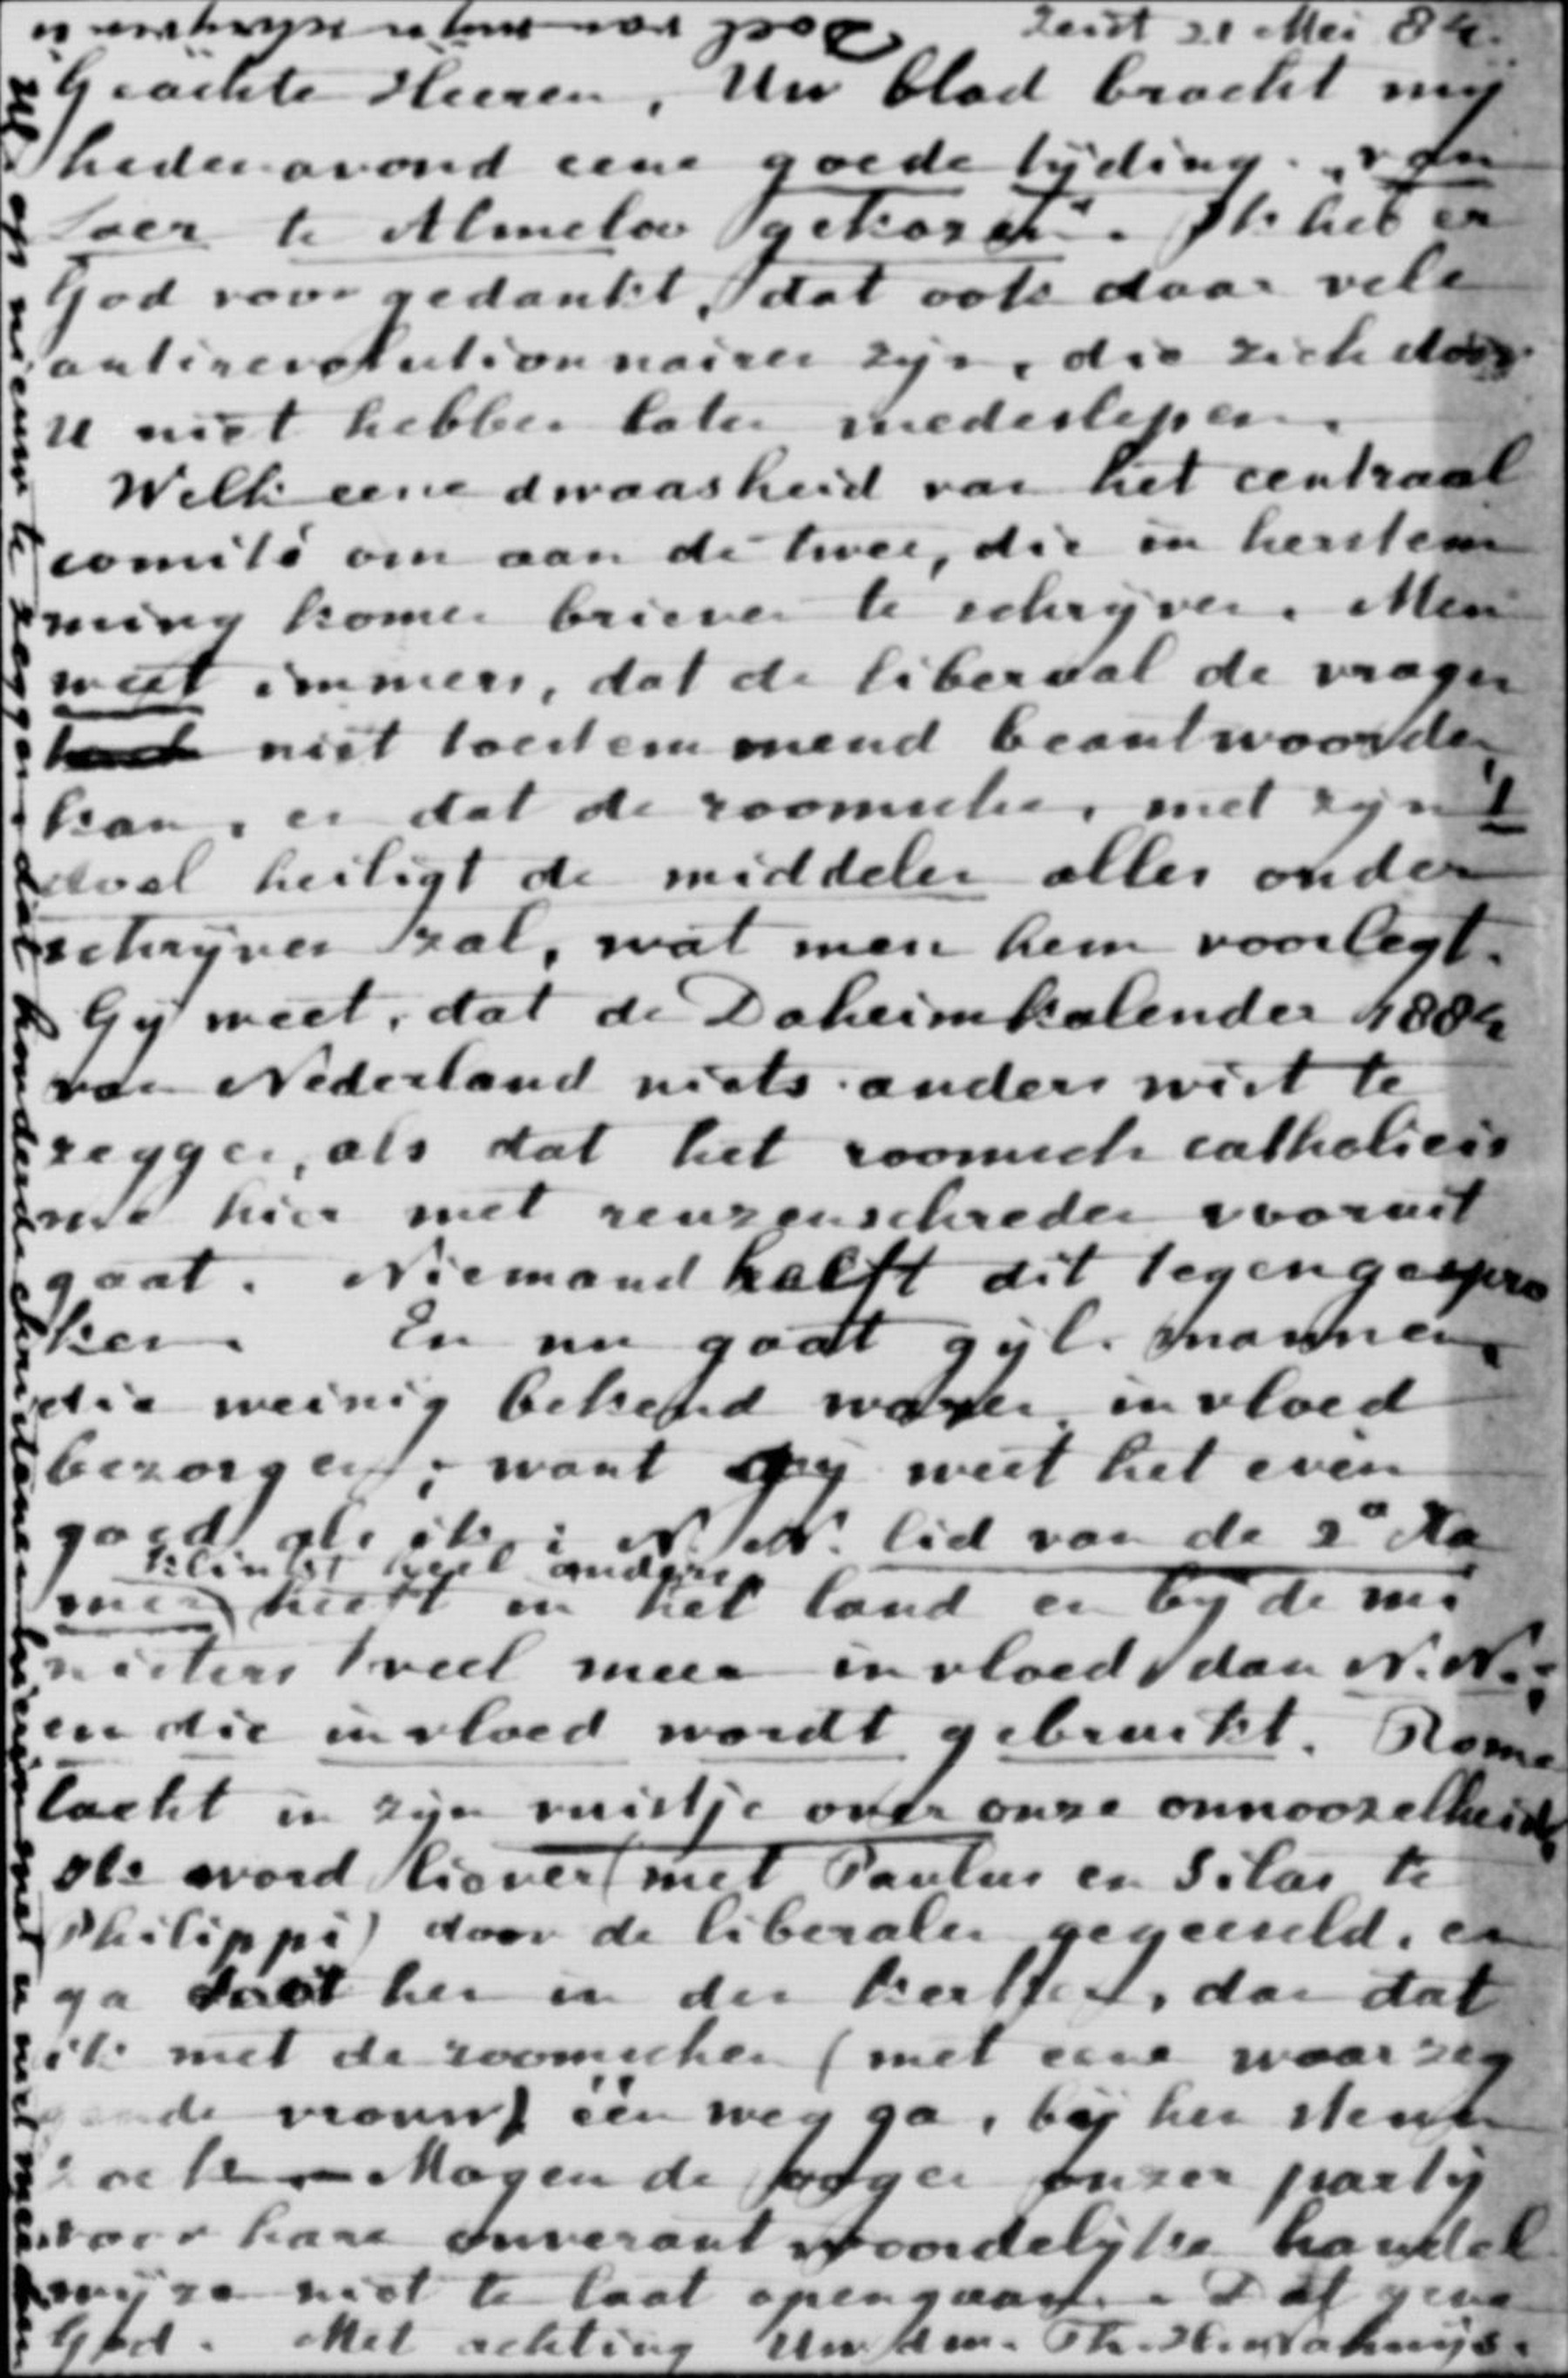 Zeist 21 Mei 84.
Geachte Heeren, Uw blad bracht mij
hedenavond eene goede tijding. "van
Loer te Almeloo gekozen". Ik heb er
God voor gedankt, dat ook daar vele
antirevolutionnairen zijn, die zich door
U niet hebben laten medeslepen.
Welk eene dwaasheid van het centraal
comité om aan de twee, die in herstem
ming komen brieven te schrijven. Men
weet immers, dat de liberaal de vragen
niet toestemmend beantwoorden
kan, en dat de roomsche, met zijn 't
doel heiligt de middelen alles onder
schrijven zal, wat men hem voorlegt.
Gij weet, dat de Daheimkalender 1884
van Nederland niets anders wist te
zeggen, als dat het roomsch catholicis
me hier met reuzenschreden vooruit
gaat. Niemand heeft dit tegengespro
ken. En nu gaat gijl. mannen,
die weinig bekend waren invloed
bezorgen; want gij weet het even
goed als ik: N.N. lid van de 2e Ka
klinkt heel anders
mer heeft in het land en bij de mi
nisters veel meer invloed dan N.N.;
en die invloed wordt gebruikt. Rome
lacht in zijn vuistje over onze onnoozelheid
Ik word liever (met Paulus en Silas te
Philippi) door de liberalen gegeeseld, en
ga met hen in den kerker, dan dat
ik met de roomschen (met eene waarzeg
gende vrouw) één weg ga, bij hen steun
zoek. Mogen de oogen onzer partij
voor hare onverantwoordelijke handel
wijze niet te laat opengaan. Dat geve
God. Met achting Uw dw. Th.
U op nieuw te zeggen, dat honderden christenen hierin met u niet meedoen
Doch van mij te schrijven is